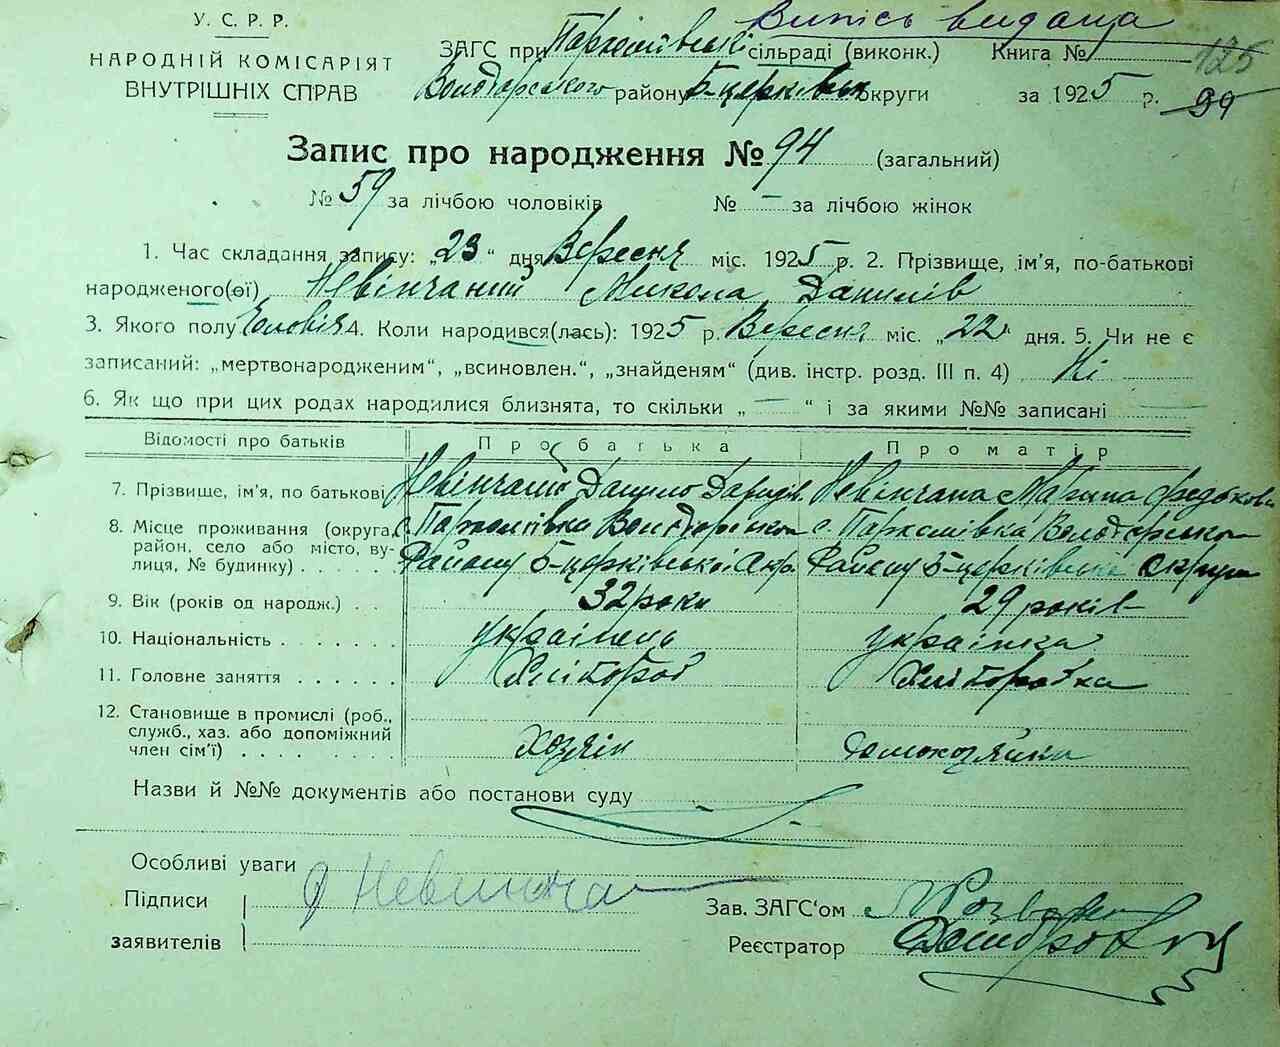 У. С. Р. Р. Випись видана
НАРОДНІЙ КОМІСАРІЯТ ЗАГС при Пархомівські сільраді (виконк.) Книга № 125
ВНУТРІШНІХ СПРАВ Володарського району Б-церківськ округи за 1925 р. 99
Запис про народження № 94 (загальний)
№ 59 за лічбою чоловіків № — за лічбою жінок
1. Час складання запису: „23“ дня Вересня міс. 1925 р. 2. Прізвище, ім'я, по-батькові
народженого(ої) Невінчаний Микола Данилів
3. Якого полу Чоловіч 4. Коли народився(лась): 1925 р. Вересня міс. „22“ дня. 5. Чи не є
записаний: „мертвонародженим“, „всиновлен.“, „знайденям“ (див. інстр. розд. III п. 4) Ні
6. Як що при цих родах народилися близнята, то скільки „ — “ і за якими №№ записані —
Відомості про батьків Про батька Про матір
7. Прізвище, ім'я, по батькові Невінчаний Данило Давидів. Невінчана Марина Федькова
8. Місце проживання (округа, с. Пархомівка Володарського с. Пархомівка Володарського
район, село або місто, ву-
лиця, № будинку) . . . . . Району Б-церківської Окр. Району Б-церківської Округи
9. Вік (років од народж.) . . 32 роки 29 років
10. Національність . . . . . . українець українка
11. Головне заняття . . . . . . Хлібороб Хліборобка
12. Становище в промислі (роб.,
служб., хаз. або допоміжний
член сім'ї) . . . . . . . . Хозяїн домохозяйка
Назви й №№ документів або постанови суду
Особливі уваги
Підписи Д Невинча
Зав. ЗАГС'ом
заявителів Реєстратор